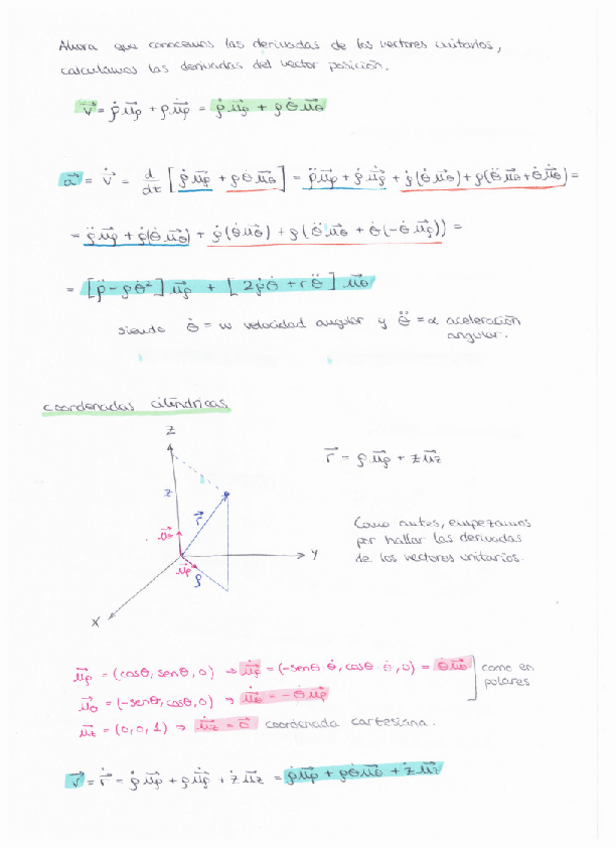 Ahora que conocemos las derivadas de los vectores unitarios,
calculamos las derivadas del vector posición.
v⃗ = ρ̇ u⃗ρ + ρ u̇⃗ρ = ρ̇ u⃗ρ + ρ θ̇ u⃗θ
a⃗ = v̇⃗ = d/dt [ρ̇ u⃗ρ + ρ θ̇ u⃗θ] = ρ̈ u⃗ρ + ρ̇ u̇⃗ρ + ρ̇(θ̇ u⃗θ) + ρ(θ̈ u⃗θ + θ̇ u̇⃗θ) =
= ρ̈ u⃗ρ + ρ̇(θ̇ u⃗θ) + ρ̇(θ̇ u⃗θ) + ρ(θ̈ u⃗θ + θ̇(-θ̇ u⃗ρ)) =
= [ρ̈ - ρ θ̇²] u⃗ρ + [2ρ̇ θ̇ + r θ̈] u⃗θ
siendo θ̇ = w velocidad angular y θ̈ = α aceleración
angular.
coordenadas cilíndricas
z
r⃗ = ρ u⃗ρ + z u⃗z
z
r⃗
Como antes, empezamos
por hallar las derivadas
de los vectores unitarios.
u⃗θ
y
u⃗ρ
ρ
x
u⃗ρ = (cosθ, senθ, 0) → u̇⃗ρ = (-senθ θ̇, cosθ θ̇, 0) = θ̇ u⃗θ
u⃗θ = (-senθ, cosθ, 0) → u̇⃗θ = -θ̇ u⃗ρ
como en
polares
u⃗z = (0, 0, 1) ⇒ u̇⃗z = 0⃗ coordenada cartesiana.
v⃗ = ṙ⃗ = ρ̇ u⃗ρ + ρ u̇⃗ρ + ż u⃗z = ρ̇ u⃗ρ + ρ θ̇ u⃗θ + ż u⃗z